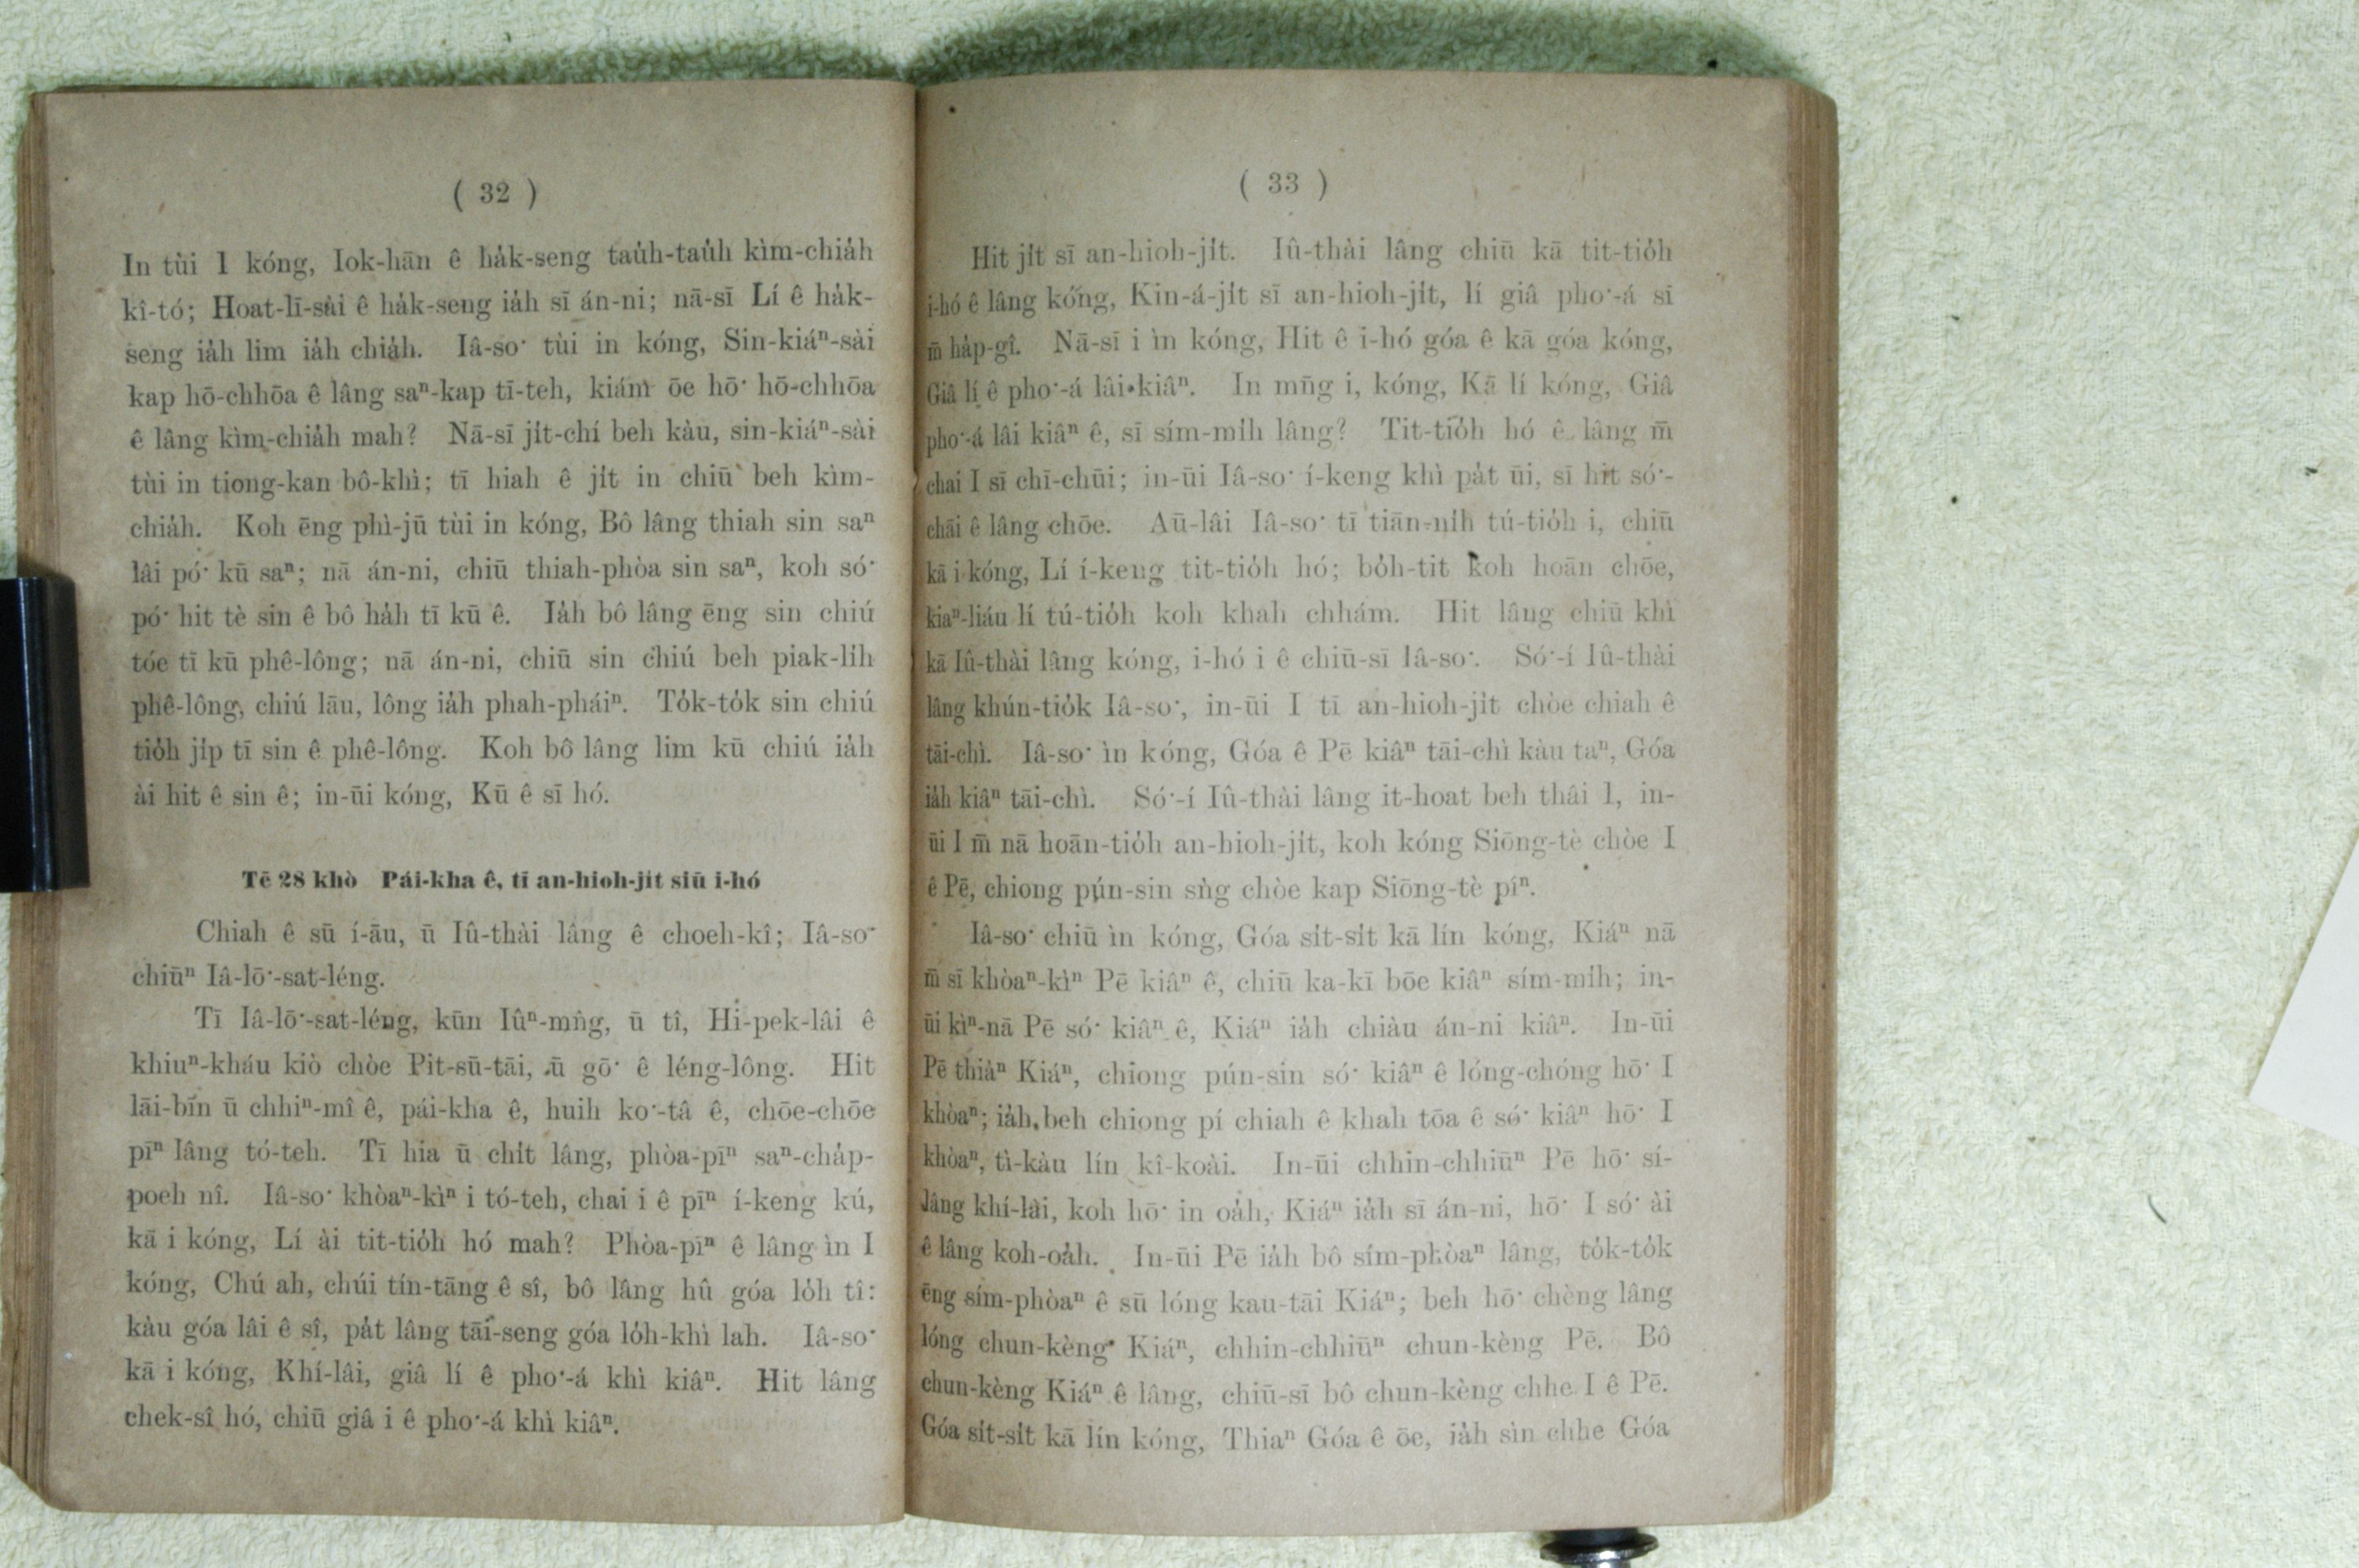 ( 32 )
In tùi I kóng, Iok-hān ê ha̍k-seng tau̍h-tau̍h kìm-chia̍h
kî-tó; Hoat-lī-sài ê ha̍k-seng ia̍h sī án-ni; nā-sī Lí ê ha̍k-
seng ia̍h lim ia̍h chia̍h. Iâ-so͘ tùi in kóng, Sin-kiáⁿ-sài
kap hō-chhōa ê lâng saⁿ-kap tī-teh, kiám ōe hō͘ hō-chhōa
ê lâng kìm-chia̍h mah? Nā-sī ji̍t-chí beh kàu, sin-kiáⁿ-sài
tùi in tiong-kan bô-khì; tī hiah ê ji̍t in chiū beh kìm-
chia̍h. Koh ēng phì-jū tùi in kóng, Bô lâng thiah sin saⁿ
lâi pó͘ kū saⁿ; nā án-ni, chiū thiah-phòa sin saⁿ, koh só͘
pó͘ hit tè sin ê bô ha̍h tī kū ê. Ia̍h bô lâng ēng sin chiú
tóe tī kū phê-lông; nā án-ni, chiū sin chiú beh piak-li̍h
phê-lông, chiú lāu, lông ia̍h phah-pháiⁿ. To̍k-to̍k sin chiú
tio̍h ji̍p tī sin ê phê-lông. Koh bô lâng lim kū chiú ia̍h
ài hit ê sin ê; in-ūi kóng, Kū ê sī hó.
Tē 28 khò Pái-kha ê, tī an-hioh-ji̍t siū i-hó
Chiah ê sū í-āu, ū Iû-thài lâng ê choeh-kî; Iâ-so͘
chiūⁿ Iâ-lō͘-sat-léng.
Tī Iâ-lō͘-sat-léng, kūn Iûⁿ-mn̂g, ū tî, Hi-pek-lâi ê
khiuⁿ-kháu kiò chòe Pit-sū-tāi, ū gō͘ ê léng-lông. Hit
lāi-bīn ū chhiⁿ-mî ê, pái-kha ê, huih ko͘-tâ ê, chōe-chōe
pīⁿ lâng tó-teh. Tī hia ū chi̍t lâng, phòa-pīⁿ saⁿ-cha̍p-
poeh nî. Iâ-so͘ khòaⁿ-kìⁿ i tó-teh, chai i ê pīⁿ í-keng kú,
kā i kóng, Lí ài tit-tio̍h hó mah? Phòa-pīⁿ ê lâng ìn I
kóng, Chú ah, chúi tín-tāng ê sî, bô lâng hû góa lo̍h tî:
kàu góa lâi ê sî, pa̍t lâng tāi-seng góa lo̍h-khì lah. Iâ-so͘
kā i kóng, Khí-lâi, giâ lí ê pho͘-á khì kiâⁿ. Hit lâng
chek-sî hó, chiū giâ i ê pho͘-á khì kiâⁿ.
( 33 )
Hit ji̍t sī an-hioh-ji̍t. Iû-thài lâng chiū kā tit-tio̍h
i-hó ê lâng kóng, Kin-á-ji̍t sī an-hioh-ji̍t, lí giâ pho͘-á sī
m̄ ha̍p-gî. Nā-sī i ìn kóng, Hit ê i-hó góa ê kā góa kóng,
Giâ lí ê pho͘-á lâi-kiâⁿ. In mn̄g i, kóng, Kā lí kóng, Giâ
pho͘-á lâi kiâⁿ ê, sī sím-mi̍h lâng? Tit-tio̍h hó ê lâng m̄
chai I sī chī-chūi; in-ūi Iâ-so͘ í-keng khì pa̍t ūi, sī hit só͘-
chāi ê lâng chōe. Aū-lâi Iâ-so͘ tī tiān-ni̍h tú-tio̍h i, chiū
kā i kóng, Lí í-keng tit-tio̍h hó; bo̍h-tit koh hoān chōe,
kiaⁿ-liáu lí tú-tio̍h koh khah chhám. Hit lâng chiū khì
kā Iû-thài lâng kóng, i-hó i ê chiū-sī Iâ-so͘. Só͘-í Iû-thài
lâng khún-tio̍k Iâ-so͘, in-ūi I tī an-hioh-ji̍t chòe chiah ê
tāi-chì. Iâ-so͘ ìn kóng, Góa ê Pē kiâⁿ tāi-chì kàu taⁿ, Góa
ia̍h kiâⁿ tāi-chì. Só͘-í Iû-thài lâng it-hoat beh thâi I, in-
ūi I m̄ nā hoān-tio̍h an-hioh-ji̍t, koh kóng Siōng-tè chòe I
ê Pē, chiong pún-sin sǹg chòe kap Siōng-tè pîⁿ.
Iâ-so͘ chiū ìn kóng, Góa si̍t-si̍t kā lín kóng, Kiáⁿ nā
m̄ sī khòaⁿ-kìⁿ Pē kiâⁿ ê, chiū ka-kī bōe kiâⁿ sím-mi̍h; in-
ūi kìⁿ-nā Pē só͘ kiâⁿ ê, Kiáⁿ ia̍h chiàu án-ni kiâⁿ. In-ūi
Pē thiàⁿ Kiáⁿ, chiong pún-sin só͘ kiâⁿ ê lóng-chóng hō͘ I
khòaⁿ; ia̍h beh chiong pí chiah ê khah tōa ê só͘ kiâⁿ hō͘ I
khòaⁿ, tì-kàu lín kî-koài. In-ūi chhin-chhiūⁿ Pē hō͘ sí-
lâng khí-lâi, koh hō͘ in oa̍h, Kiáⁿ ia̍h sī án-ni, hō͘ I só͘ ài
ê lâng koh-oa̍h. In-ūi Pē ia̍h bô sím-phòaⁿ lâng, to̍k-to̍k
ēng sím-phòaⁿ ê sū lóng kau-tāi Kiáⁿ; beh hō͘ chèng lâng
lóng chun-kèng Kiáⁿ, chhin-chhiūⁿ chun-kèng Pē. Bô
chun-kèng Kiáⁿ ê lâng, chiū-sī bô chun-kèng chhe I ê Pē.
Góa si̍t-si̍t kā lín kóng, Thiaⁿ Góa ê ōe, ia̍h sìn chhe Góa